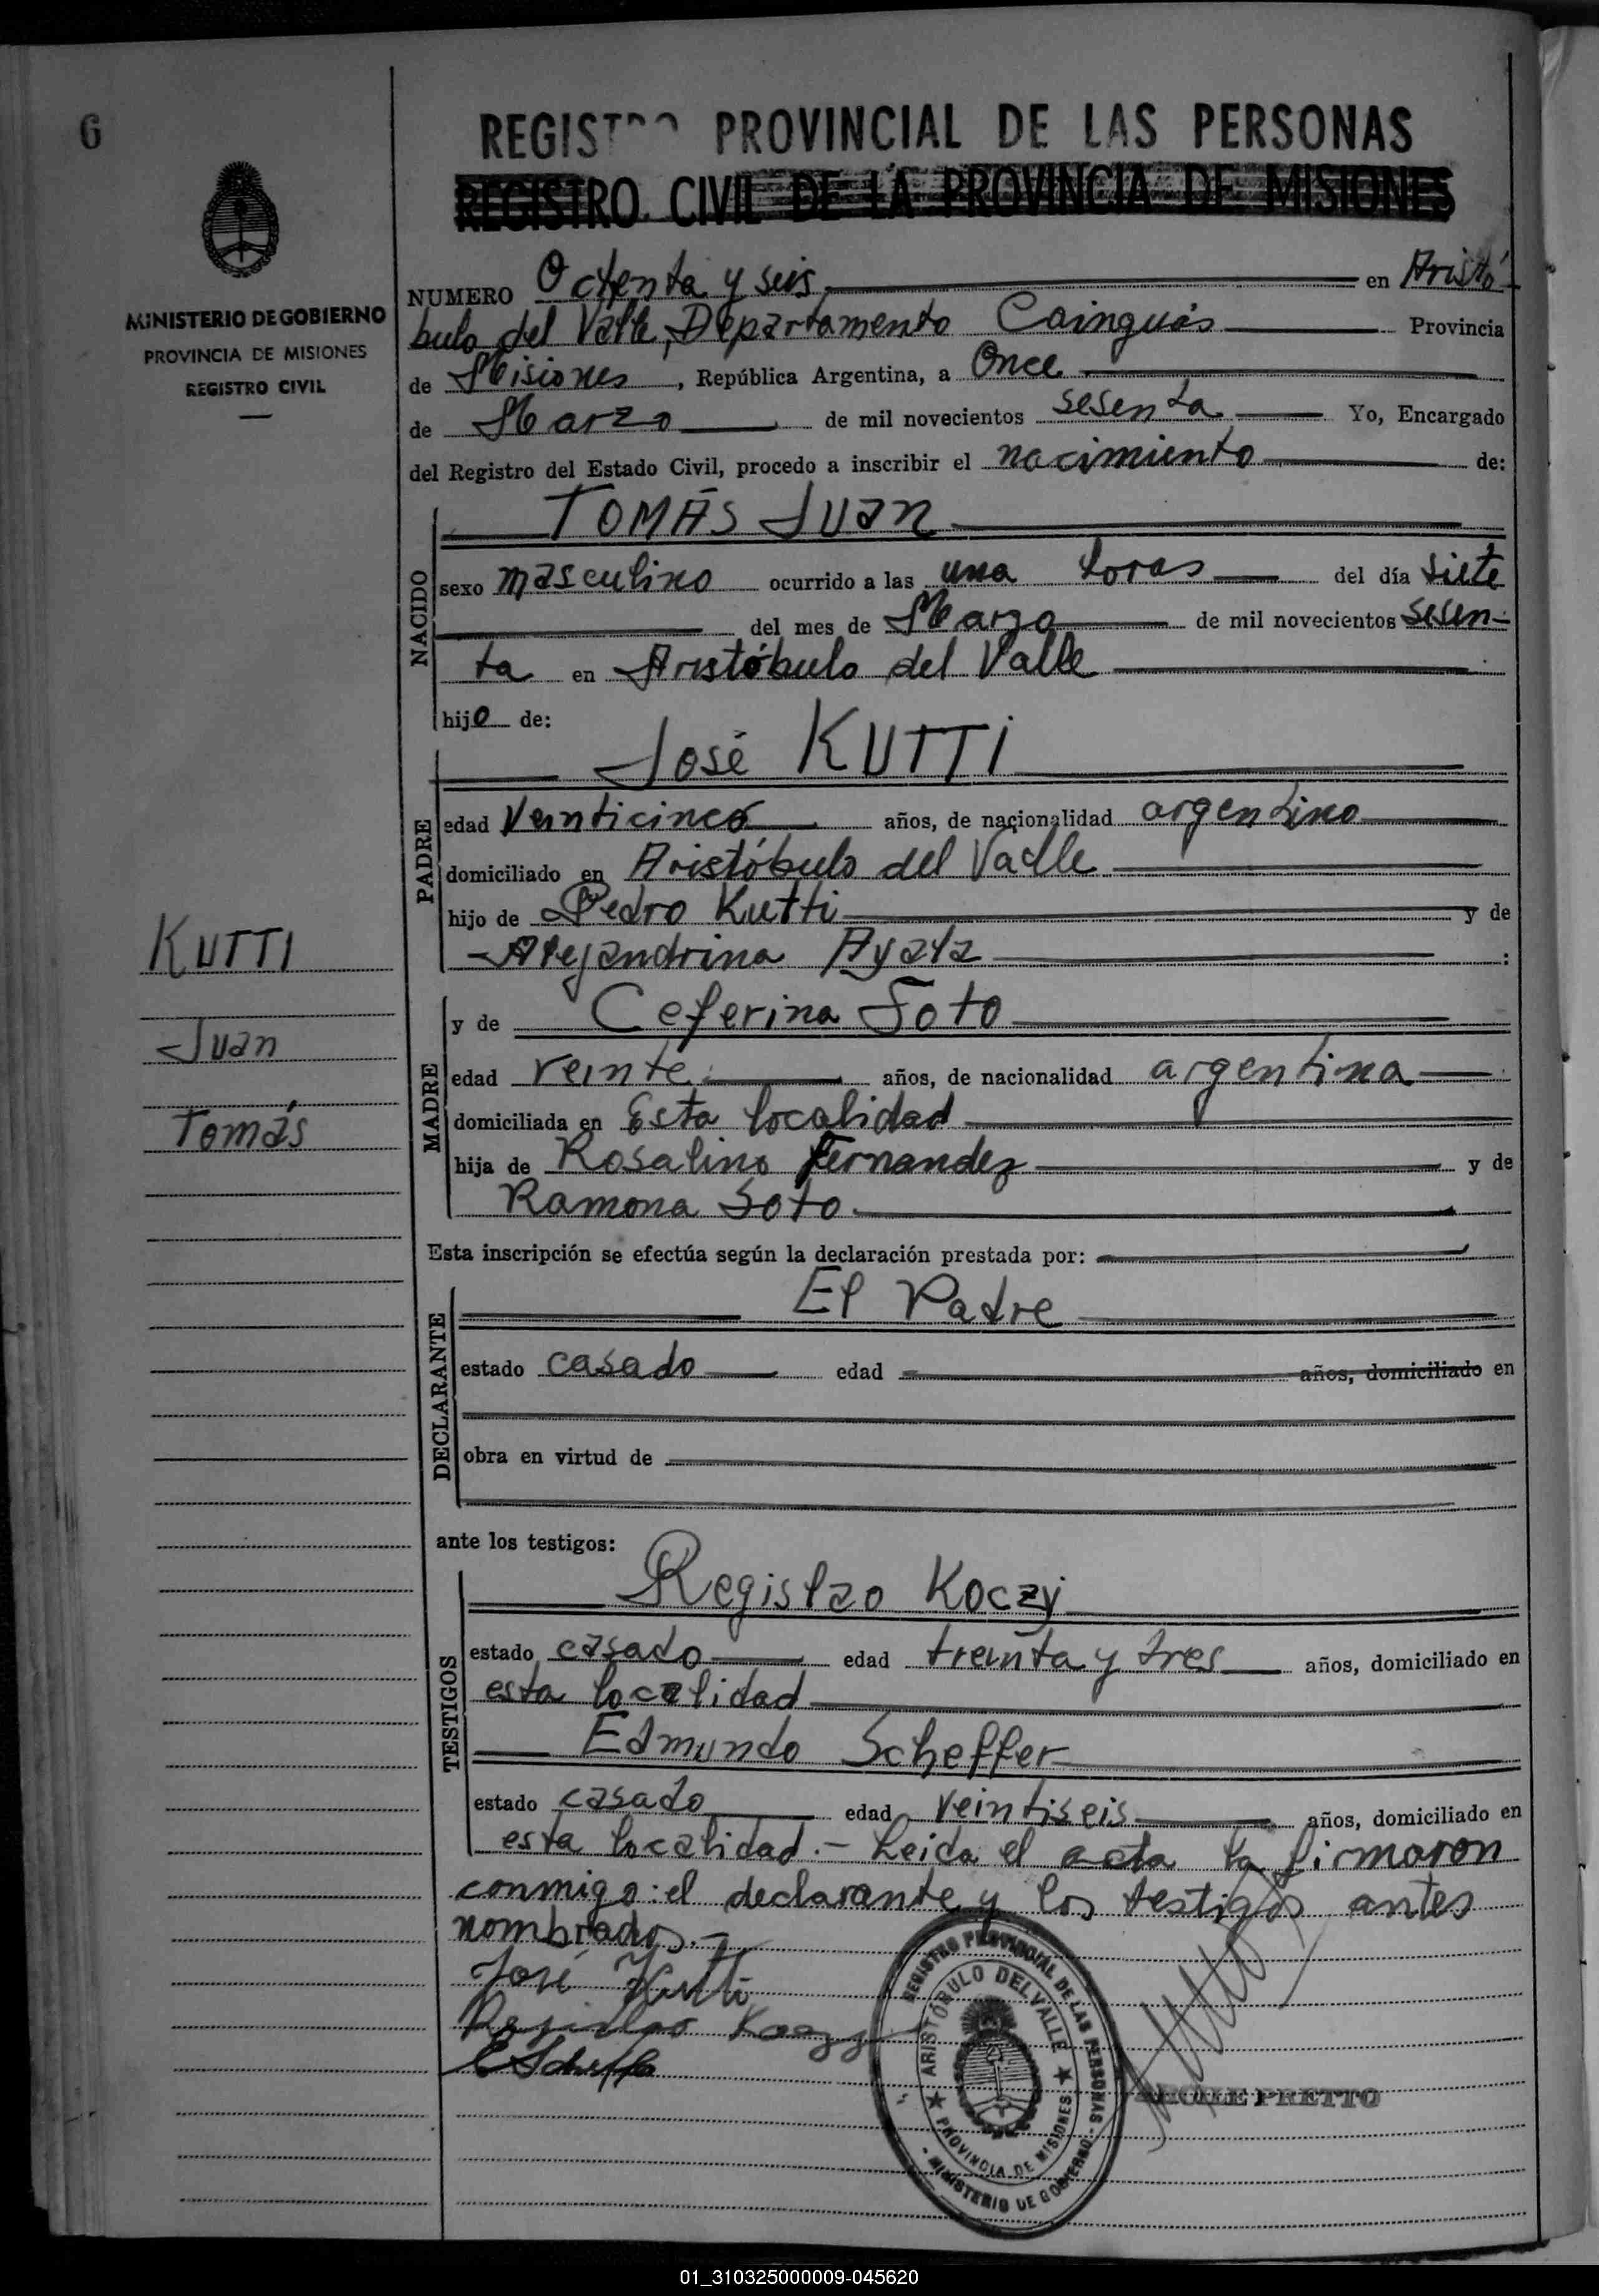 6
REGISTRO PROVINCIAL DE LAS PERSONAS
REGISTRO CIVIL DE LA PROVINCIA DE MISIONES
MINISTERIO DE GOBIERNO
PROVINCIA DE MISIONES
REGISTRO CIVIL
NUMERO Ochenta y seis en Aristó-
bulo del Valle, Departamento Cainguás Provincia
de Misiones, República Argentina, a Once
de Marzo de mil novecientos sesenta Yo, Encargado
del Registro del Estado Civil, procedo a inscribir el nacimiento de:
NACIDO
TOMÁS JUAN
sexo masculino ocurrido a las una horas del día siete
del mes de Marzo de mil novecientos sesen-
ta en Aristóbulo del Valle
hijo de:
PADRE
José KUTTI
edad Veinticinco años, de nacionalidad argentino
domiciliado en Aristóbulo del Valle
hijo de Pedro Kutti y de
Alejandrina Ayala :
KUTTI
Juan
Tomás
MADRE
y de Ceferina Soto
edad veinte años, de nacionalidad argentina
domiciliada en Esta localidad
hija de Rosalino Fernandez y de
Ramona Soto
Esta inscripción se efectúa según la declaración prestada por:
DECLARANTE
El Padre
estado casado edad años, domiciliado en
obra en virtud de
ante los testigos:
TESTIGOS
Regislao Koczy
estado casado edad treinta y tres años, domiciliado en
esta localidad
Edmundo Scheffer
estado casado edad veintiseis años, domiciliado en
esta localidad.- Leida el acta la firmaron
conmigo: el declarante y los testigos antes
nombrados.-
José Kutti
Regislao Koczy
E Scheffer
REGISTRO PROVINCIAL DE LAS PERSONAS - MINISTERIO DE GOBIERNO -
ARISTÓBULO DEL VALLE ★ PROVINCIA DE MISIONES ★
PRETTO
01_310325000009-045620